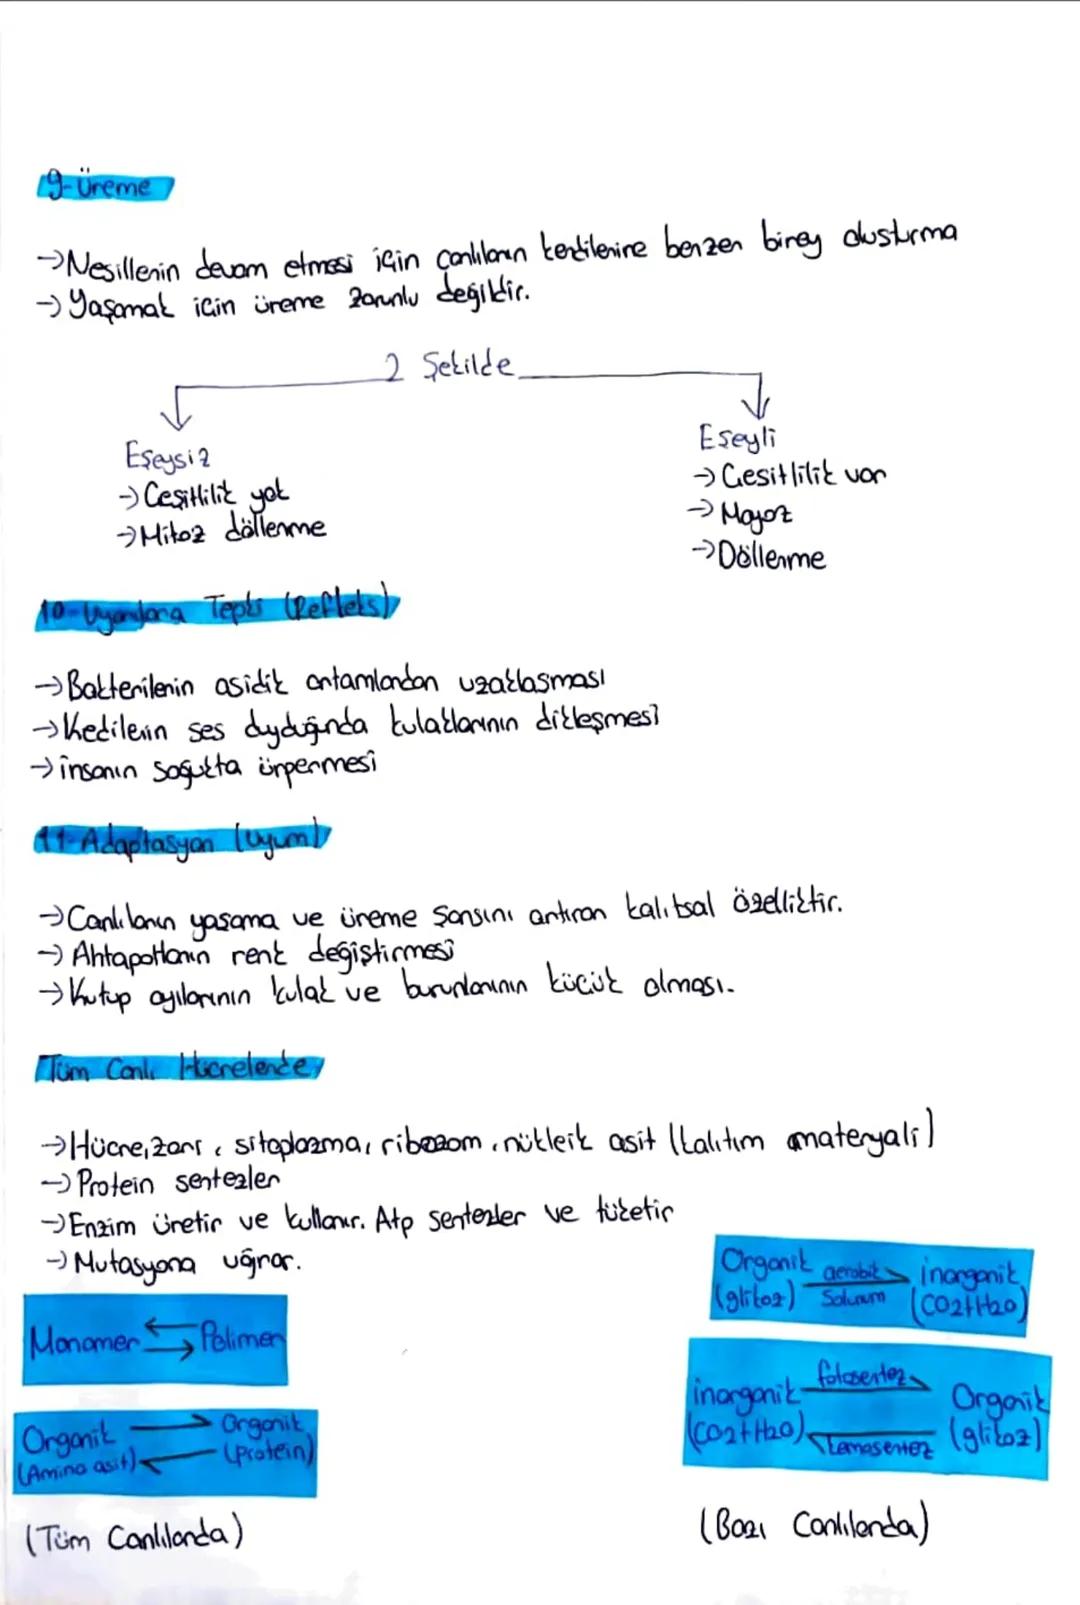 9-Üreme
→Nesillerin devam etmesi için canlıların kendilerine benzer birey oluşturma
→Yaşamak için üreme zorunlu değildir.
2 Şekilde
Eşeysiz
→Çeşitlilik yok
→Mitoz döllenme
Eşeyli
→Çeşitlilik var
→Mayoz
→Döllenme
10-Uyarılara Tepki (Refleks)
→Bakterilerin asidik ortamlardan uzaklaşması
→Kedilerin ses duyduğunda kulaklarının dikleşmesi
→insanın soğukta ürpermesi
11-Adaptasyon (Uyum)
→Canlıların yaşama ve üreme şansını artıran kalıtsal özelliktir.
→Ahtapotların renk değiştirmesi
→Kutup ayılarının kulak ve burunlarının küçük olması.
Tüm Canlı Hücrelerde
→Hücre, zarı, sitoplazma, ribozom, nükleik asit (kalıtım materyali)
→Protein sentezler
→Enzim üretir ve kullanır. Atp sentezler ve tüketir
→Mutasyona uğrar.
Monomer ⇄ Polimer
Organik (Amino asit) ⇄ Organik (protein)
(Tüm Canlılarda)
Organik (glikoz) aerobik Solunum → inorganik (CO2+H2O)
inorganik (CO2+H2O) fotosentez kemosentez Organik (glikoz)
(Bazı Canlılarda)